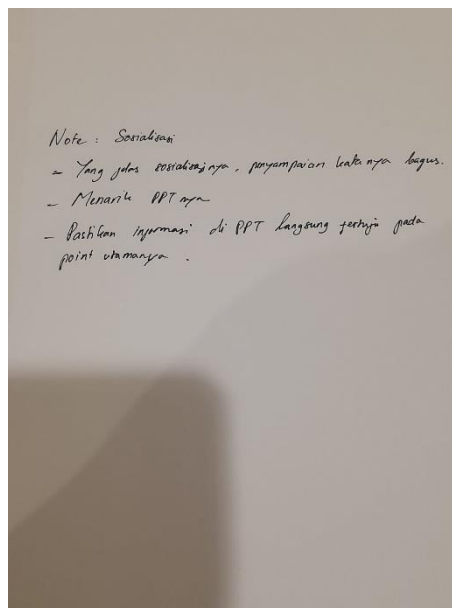 Note : Sosialisasi
- Yang jelas sosialisasinya, penyampaian katanya bagus.
- Menarik PPT nya
- Pastikan informasi di PPT langsung tertuju pada
point utamanya .